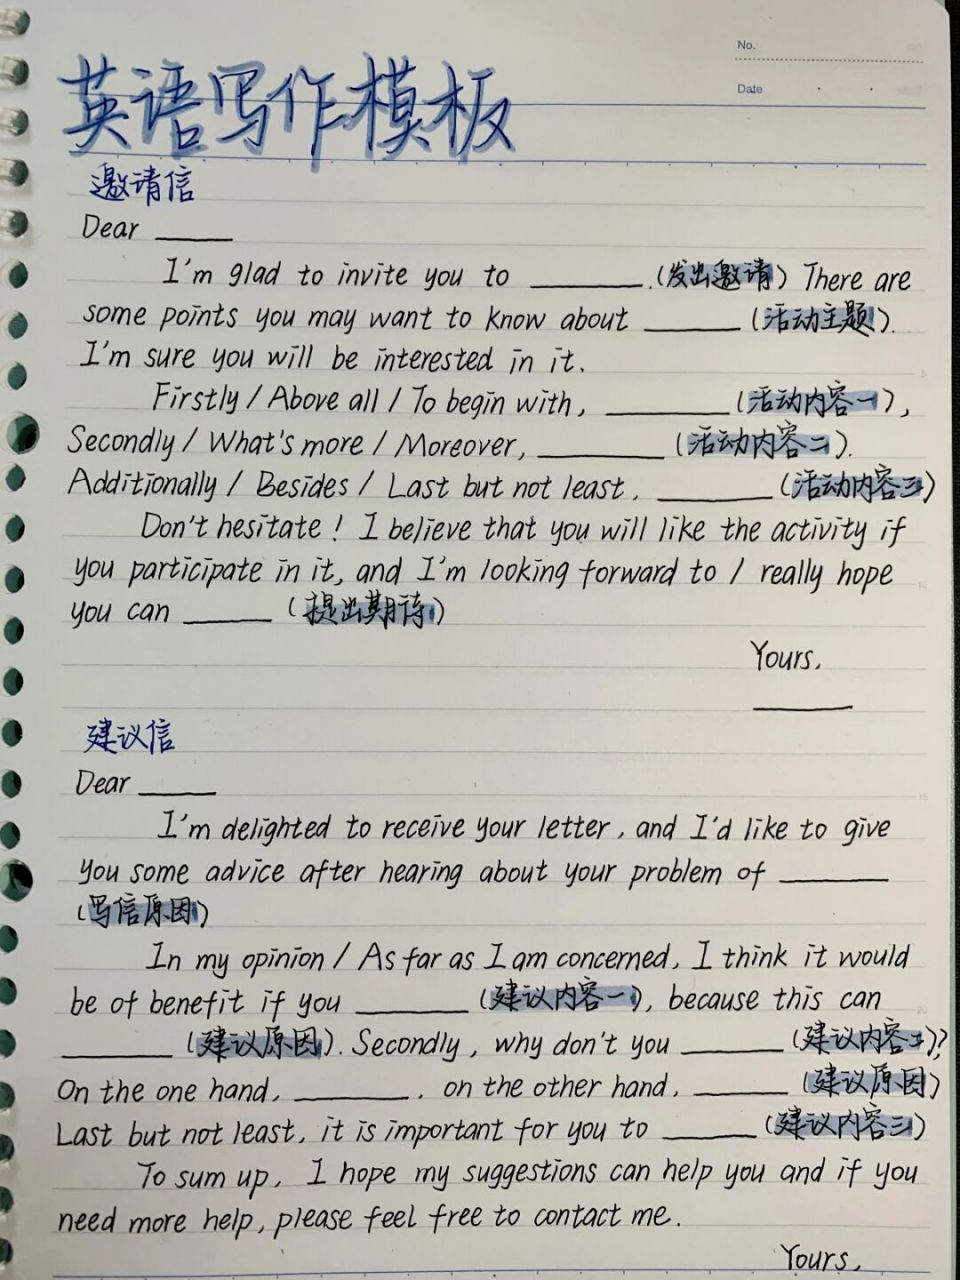 No.
Date
英语写作模板
邀请信
Dear ______
I'm glad to invite you to ______.(发出邀请) There are
some points you may want to know about ______ (活动主题).
I'm sure you will be interested in it.
Firstly / Above all / To begin with, ______ (活动内容一),
Secondly / What's more / Moreover, ______ (活动内容二).
Additionally / Besides / Last but not least, ______ (活动内容三)
Don't hesitate! I believe that you will like the activity if
you participate in it, and I'm looking forward to / really hope
you can ______ (提出期待)
Yours,
______
建议信
Dear ______
I'm delighted to receive your letter, and I'd like to give
you some advice after hearing about your problem of ______
(写信原因)
In my opinion / As far as I am concerned, I think it would
be of benefit if you ______ (建议内容一), because this can
______ (建议原因). Secondly, why don't you ______ (建议内容二)?
On the one hand, ______, on the other hand, ______ (建议原因)
Last but not least, it is important for you to ______ (建议内容三)
To sum up, I hope my suggestions can help you and if you
need more help, please feel free to contact me.
Yours,